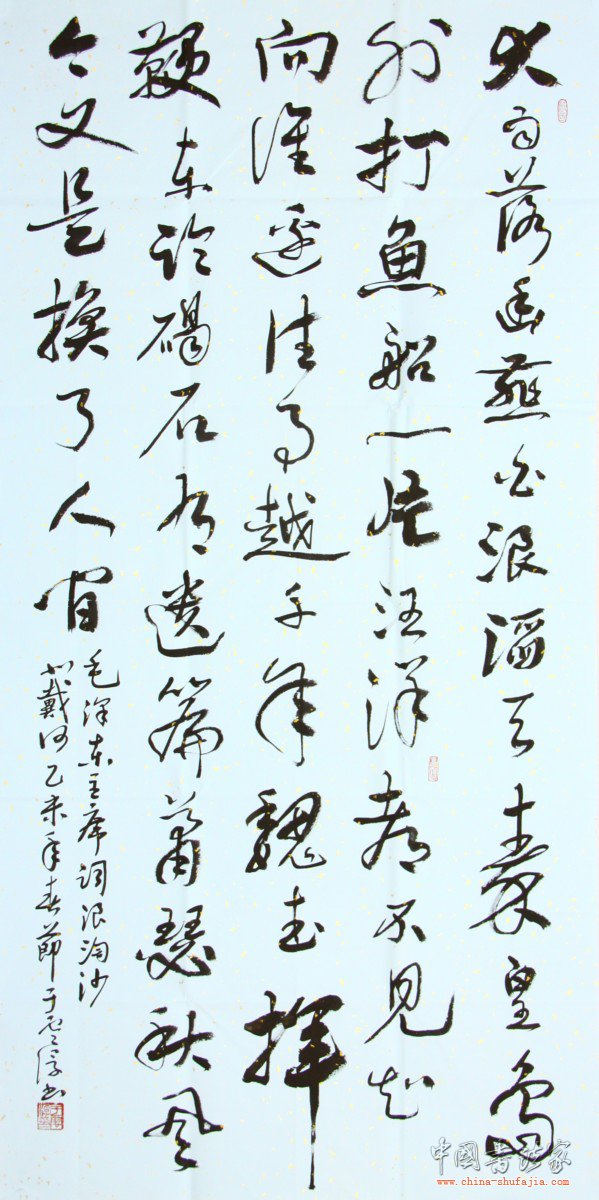 大雨落幽燕白浪滔天秦皇島
外打魚船一片汪洋都不見知
向誰邊往事越千年魏武揮
鞭東臨碣石有遺篇蕭瑟秋風
今又是換了人間
毛澤東主席詞浪淘沙
北戴河乙未年春節于淳書
中國書法家
www.china-shufajia.com